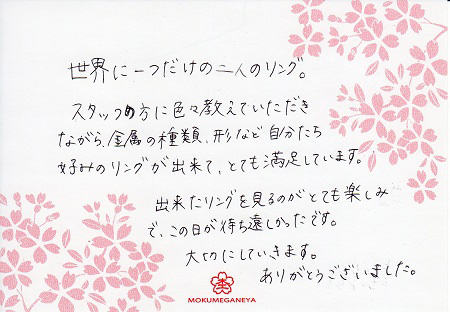 世界に一つだけの二人のリング。
スタッフの方に色々教えていただき
ながら、金属の種類、形など自分たち
好みのリングが出来て、とても満足しています。
出来たリングを見るのがとても楽しみ
で、この日が待ち遠しかったです。
大切にしていきます。
ありがとうございました。
MOKUMEGANEYA